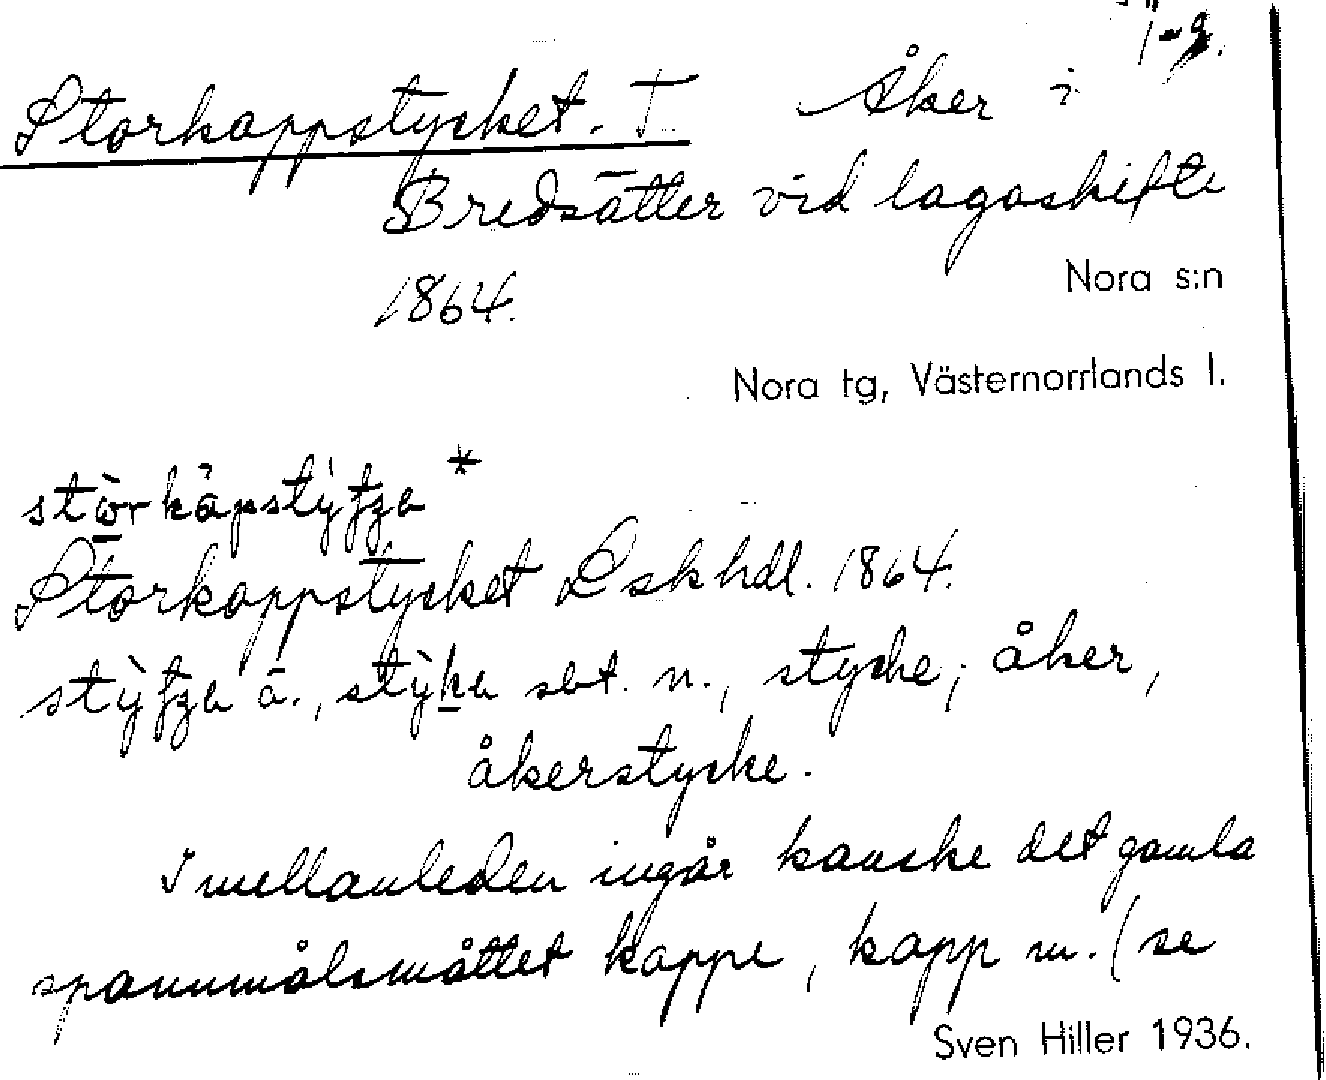 Storkappstycket. T. Åker i
Bredsätter vid lagaskifte
1864.
Nora s:n
Nora tg, Västernorrlands l.
Storkappstycket Lskhdl. 1864.
ā., sbt. n., stycke; åker,
åkerstycke.
I mellanleden ingår kanske det gamla
spannmålsmåttet kappe, kapp m. (se
Sven Hiller 1936.